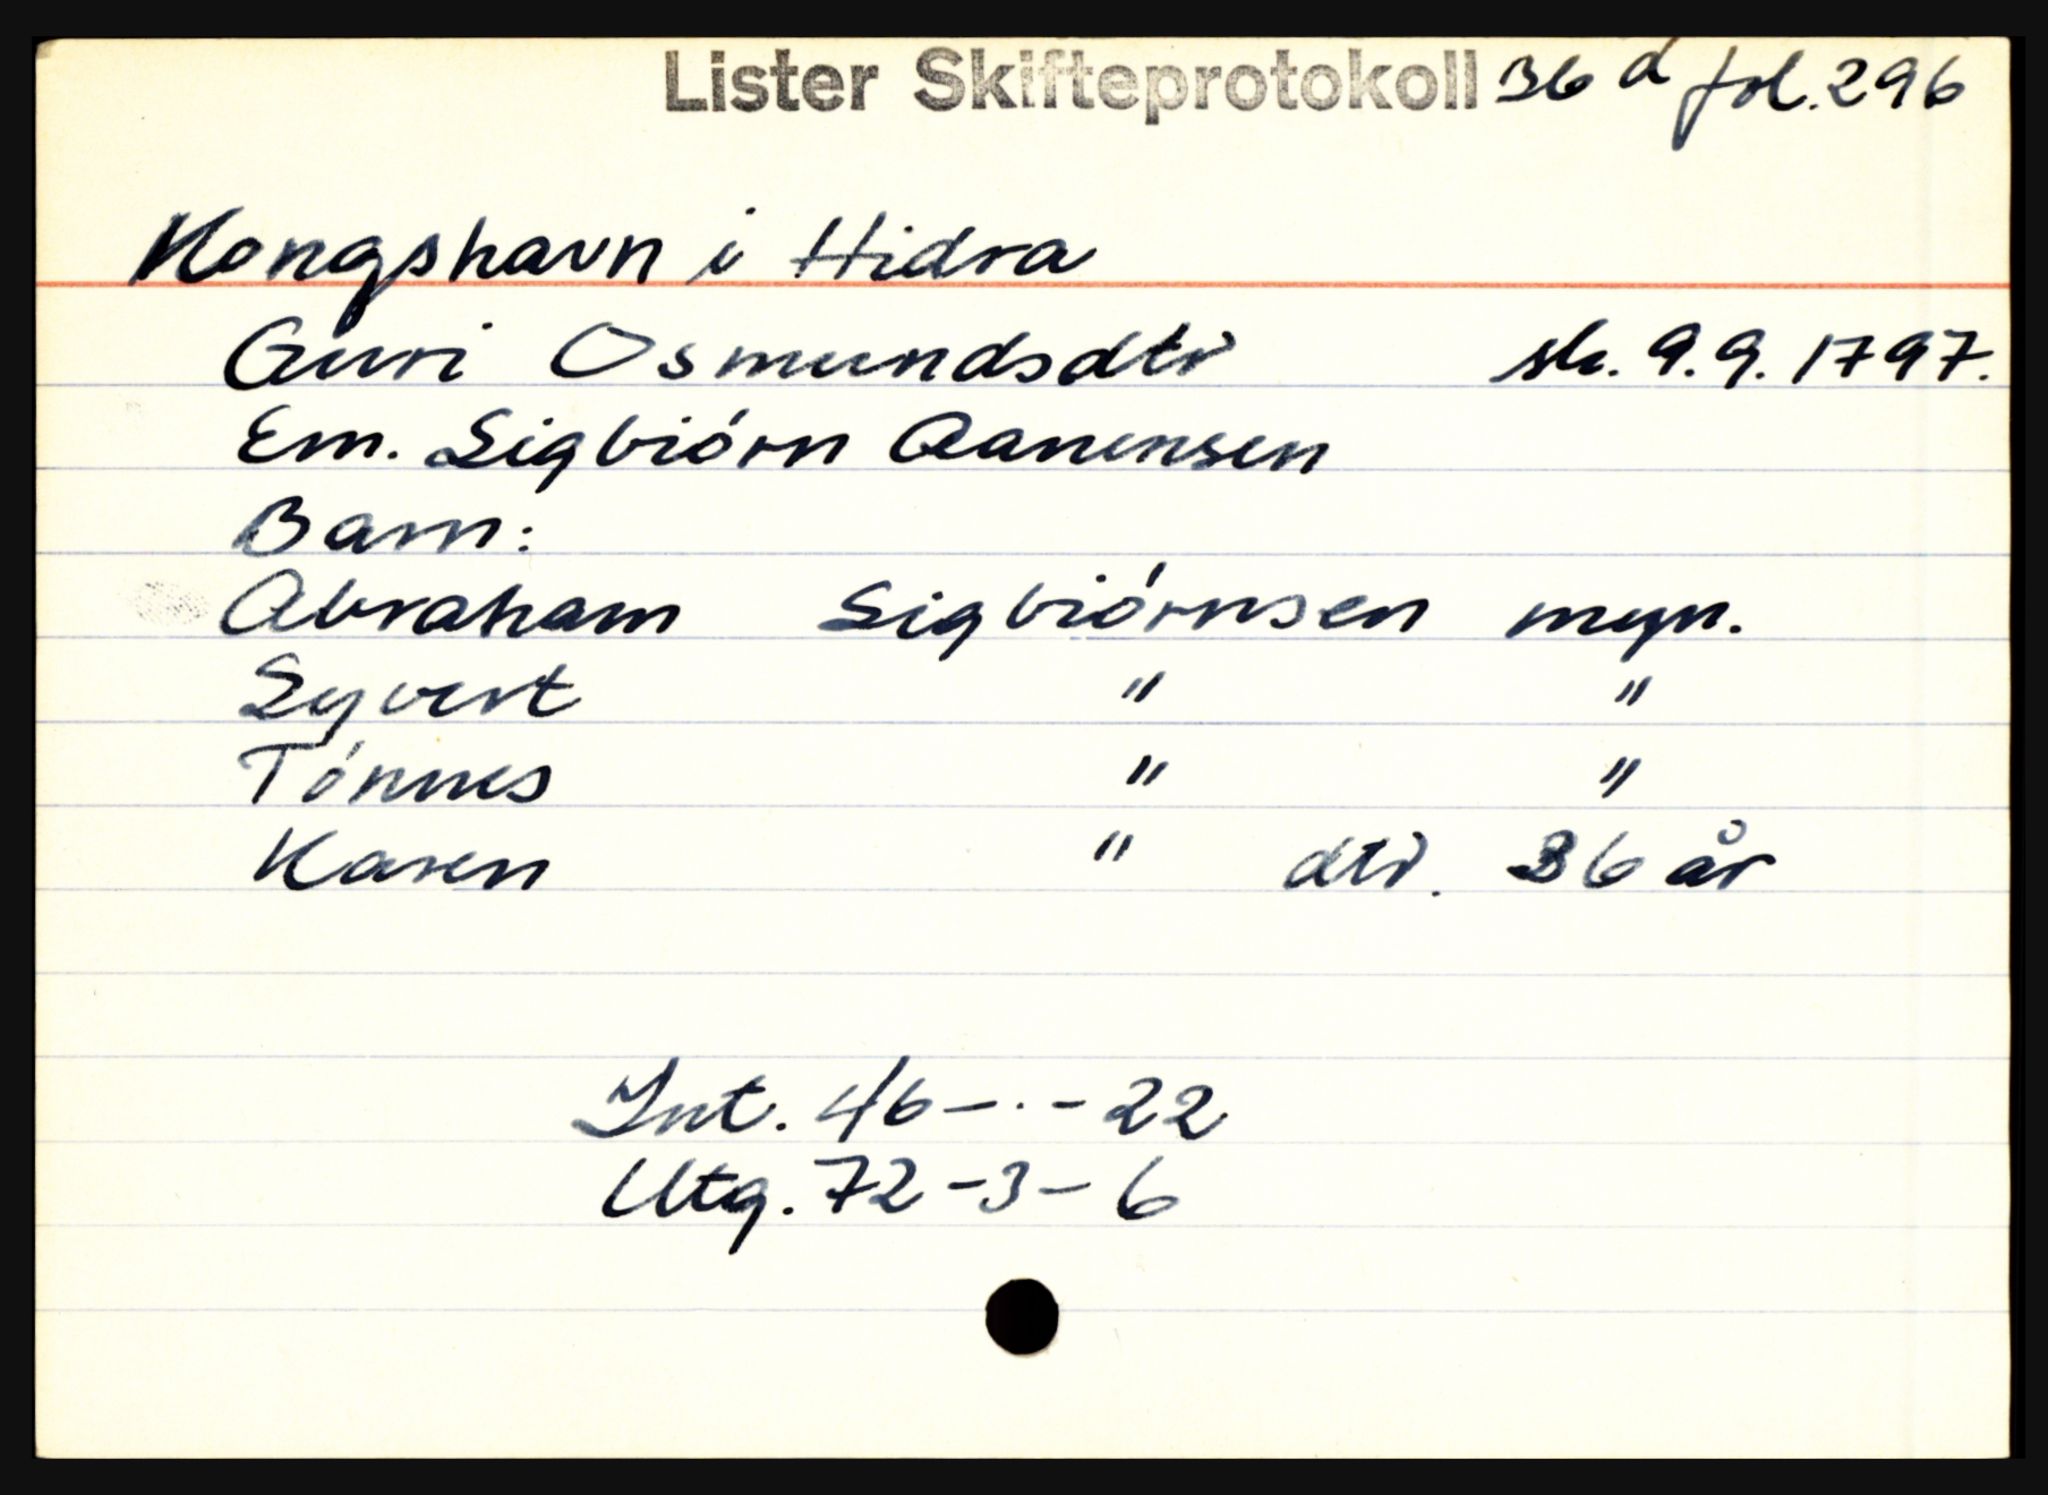 Lister Skifteprotokoll 36 d fol. 296
Kongshavn i Hidra
Guri Osmundsdtr sk. 9.9.1797.
Em. Sigbiórn Aanensen
Barn:
Abraham Sigbiórnsen myn.
Syvert " "
Tónnes " "
Karen " dtr. 36 år
Int. 46-.-22
Utg. 72-3-6